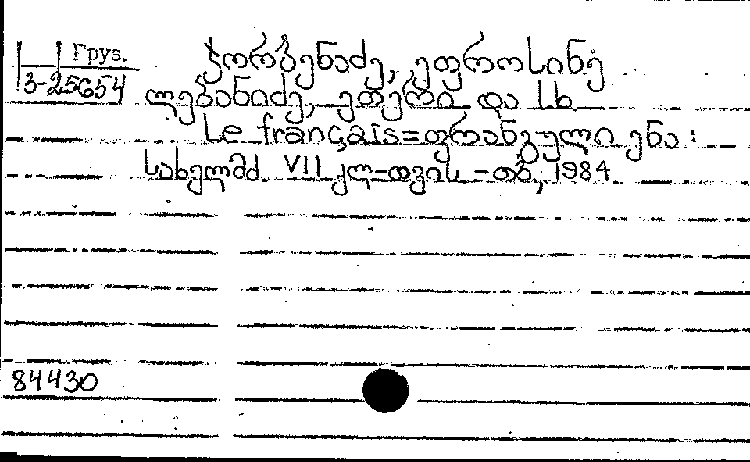 Груз.
3-25654
ჭორბენაძე, ეფროსინე
ლებანიძე, ეთერი და სხ
Le français = ფრანგული ენა:
სახელმძ. VII კლ-თვის - თბ, 1984
84430